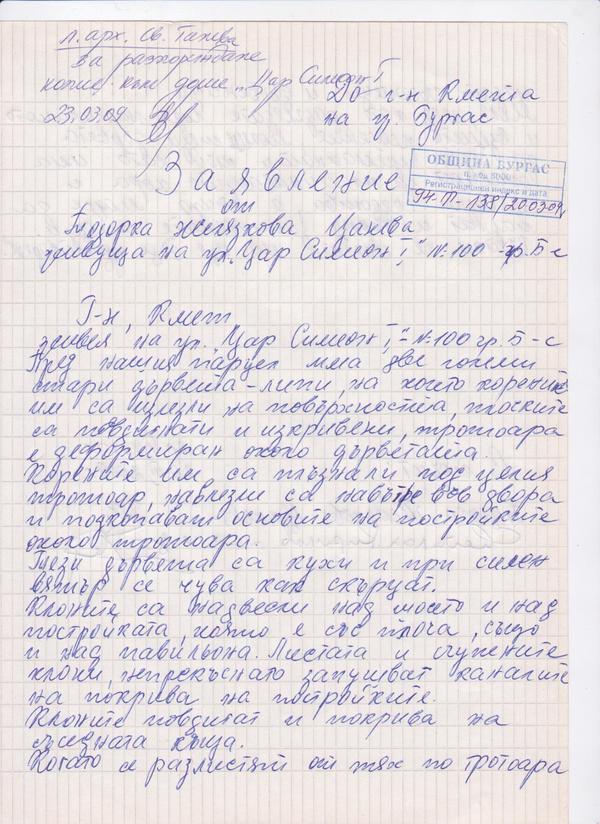 л. арх. Св. Танева
за разпореждане
копие към досие „Цар Симеон I
23.03.09
До г-н Кмета
на гр Бургас
ОБЩИНА БУРГАС
п. код 8000
Регистрационен индекс и дата
94-Т-138/200309г
Заявление
от
Тодорка Желязкова Цанева
живуща на ул. „Цар Симеон I" №100 -гр. Б-с
Г-н, Кмет
живея на ул. „Цар Симеон I"- №100 гр. Б-с
Пред нашия парцел има две големи
стари дървета-липи, на които корените
им са излезли на повърхността, плоските
са повдигнати и изкривени, тротоара
е деформиран около дърветата.
Корените им, са плъзнали под целия
тротоар, навлезли са навътре във двора
и подкопават основите на постройките
около тротоара.
Тези дървета са кухи и при силен
вятър се чува как скърцат.
Клоните са надвесени над моето и над
постройката, която е със плоча, също
и над павильона. Листата и счупените
клони, непрекъснато запушват каналите
на покрива на постройките.
Клоните повдигат и покрива на
съседната къща.
Когато се разлистят от тях по тротоара